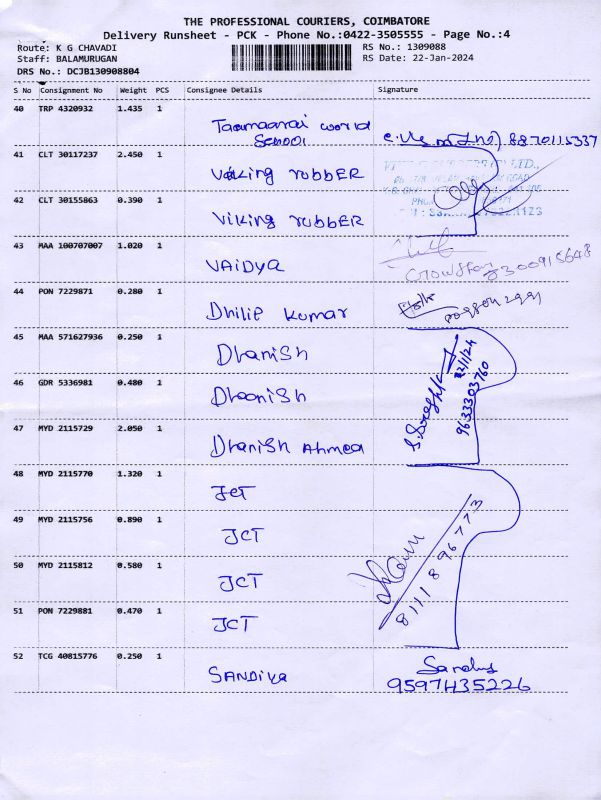 THE PROFESSIONAL COURIERS, COIMBATORE
Delivery Runsheet - PCK - Phone No.:0422-3505555 - Page No.:4
Route: K G CHAVADI RS No.: 1309088
Staff: BALAMURUGAN RS Date: 22-Jan-2024
DRS No.: DCJB130908804
S No Consignment No Weight PCS Consignee Details Signature
40 TRP 4320932 1.435 1
world School 8870115337
41 CLT 30117237 2.450 1
Viking rubbER
42 CLT 30155863 0.390 1
Viking rubbER
43 MAA 100707007 1.020 1
VAiDYA
44 PON 7229871 0.280 1
Dhilip kumar
45 MAA 571627936 0.250 1
Dhanish
22/1/24
9633303760
46 GDR 5336981 0.480 1
47 MYD 2115729 2.050 1
Dhanish Ahmed
48 MYD 2115770 1.320 1
JCT
49 MYD 2115756 0.890 1
JCT
8111896773
50 MYD 2115812 0.580 1
JCT
51 PON 7229881 0.470 1
JCT
52 TCG 40815776 0.250 1
SANDiya
9597435226